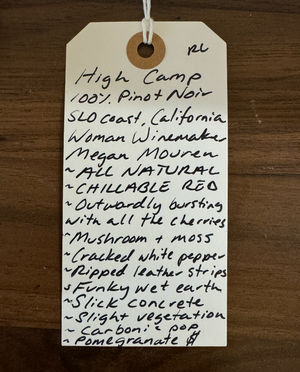 RL
High Camp
100% Pinot Noir
SLO Coast, California
Woman Winemaker
Megan Mouren
~ ALL NATURAL
~ CHILLABLE RED
~ Outwardly bursting
with all the cherries
~ Mushroom + moss
~ Cracked white pepper
~ Ripped leather strips
~ Funky wet earth
~ Slick concrete
~ Slight vegetation
~ Carbonic pop
~ Pomegranate